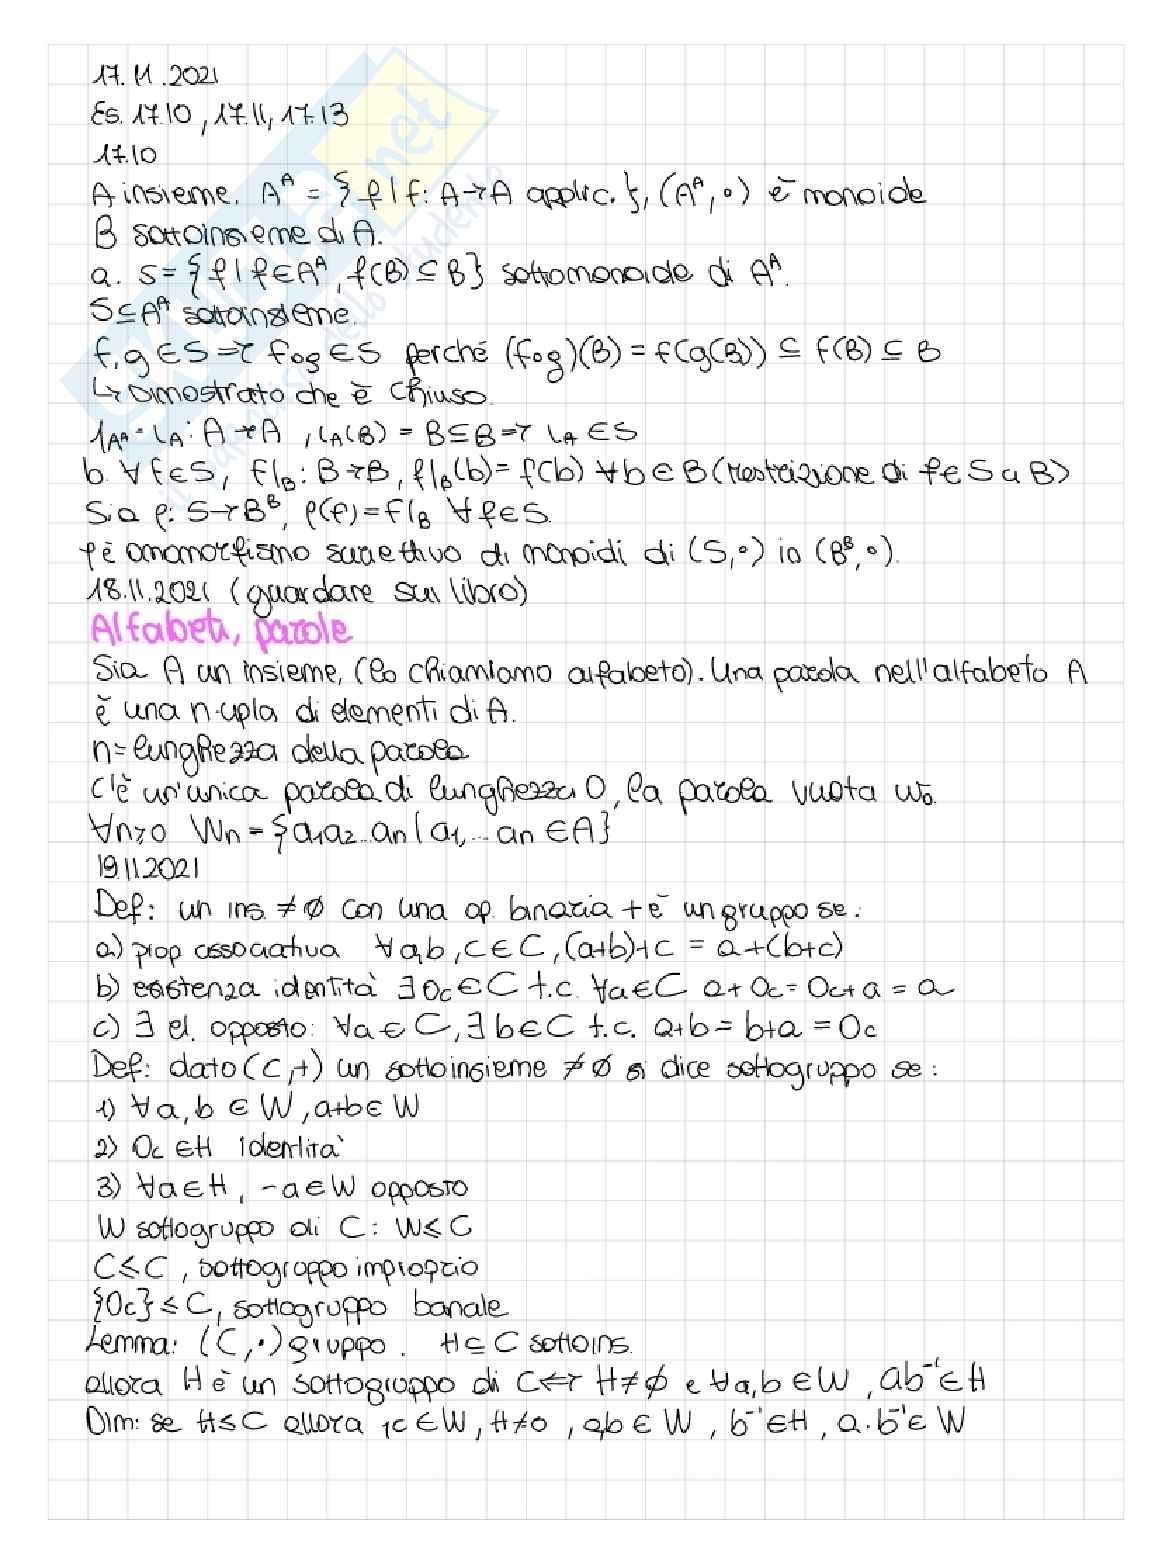 17.11.2021
Es. 17.10, 17.11, 17.13
17.10
A insieme. Aᴬ = {f | f: A→A applic.}, (Aᴬ, ∘) è monoide
B sottoinsieme di A.
a. S = {f | f∈Aᴬ, f(B) ⊆ B} sottomonoide di Aᴬ.
S⊆Aᴬ sottoinsieme.
f, g ∈ S ⇒ f∘g ∈ S perché (f∘g)(B) = f(g(B)) ⊆ f(B) ⊆ B
↳ Dimostrato che è chiuso.
1_Aᴬ = ι_A: A→A, ι_A(B) = B⊆B ⇒ ι_A ∈ S
b. ∀f∈S, f|_B: B→B, f|_B(b) = f(b) ∀b∈B (restrizione di f∈S a B)
Sia ρ: S→Bᴮ, ρ(f) = f|_B ∀f∈S.
ρ è omomorfismo suriettivo di monoidi di (S, ∘) in (Bᴮ, ∘).
18.11.2021 (guardare sul libro)
Alfabeti, parole
Sia A un insieme, (lo chiamiamo alfabeto). Una parola nell'alfabeto A
è una n-upla di elementi di A.
n = lunghezza della parola
C'è un'unica parola di lunghezza 0, la parola vuota w₀.
∀n≥0 Wn = {a₁a₂...an | a₁,...an ∈ A}
19.11.2021
Def: un ins. ≠ ∅ con una op. binaria + è un gruppo se:
a) prop associativa ∀a,b,c ∈ C, (a+b)+c = a+(b+c)
b) esistenza identità ∃ 0c ∈ C t.c. ∀a∈C a+0c = 0c+a = a
c) ∃ el. opposto: ∀a ∈ C, ∃ b∈C t.c. a+b = b+a = 0c
Def: dato (C,+) un sottoinsieme ≠ ∅ si dice sottogruppo se:
1) ∀a, b ∈ W, a+b ∈ W
2) 0c ∈ H identità
3) ∀a∈H, -a∈W opposto
W sottogruppo di C: W≤C
C≤C, sottogruppo improprio
{0c} ≤ C, sottogruppo banale
Lemma: (C,·) gruppo. H⊆C sottoins.
allora H è un sottogruppo di C ⟺ H≠∅ e ∀a,b∈W, ab⁻¹∈H
Dim: se H≤C allora 1c∈W, H≠0, a,b∈W, b⁻¹∈H, a·b⁻¹∈W